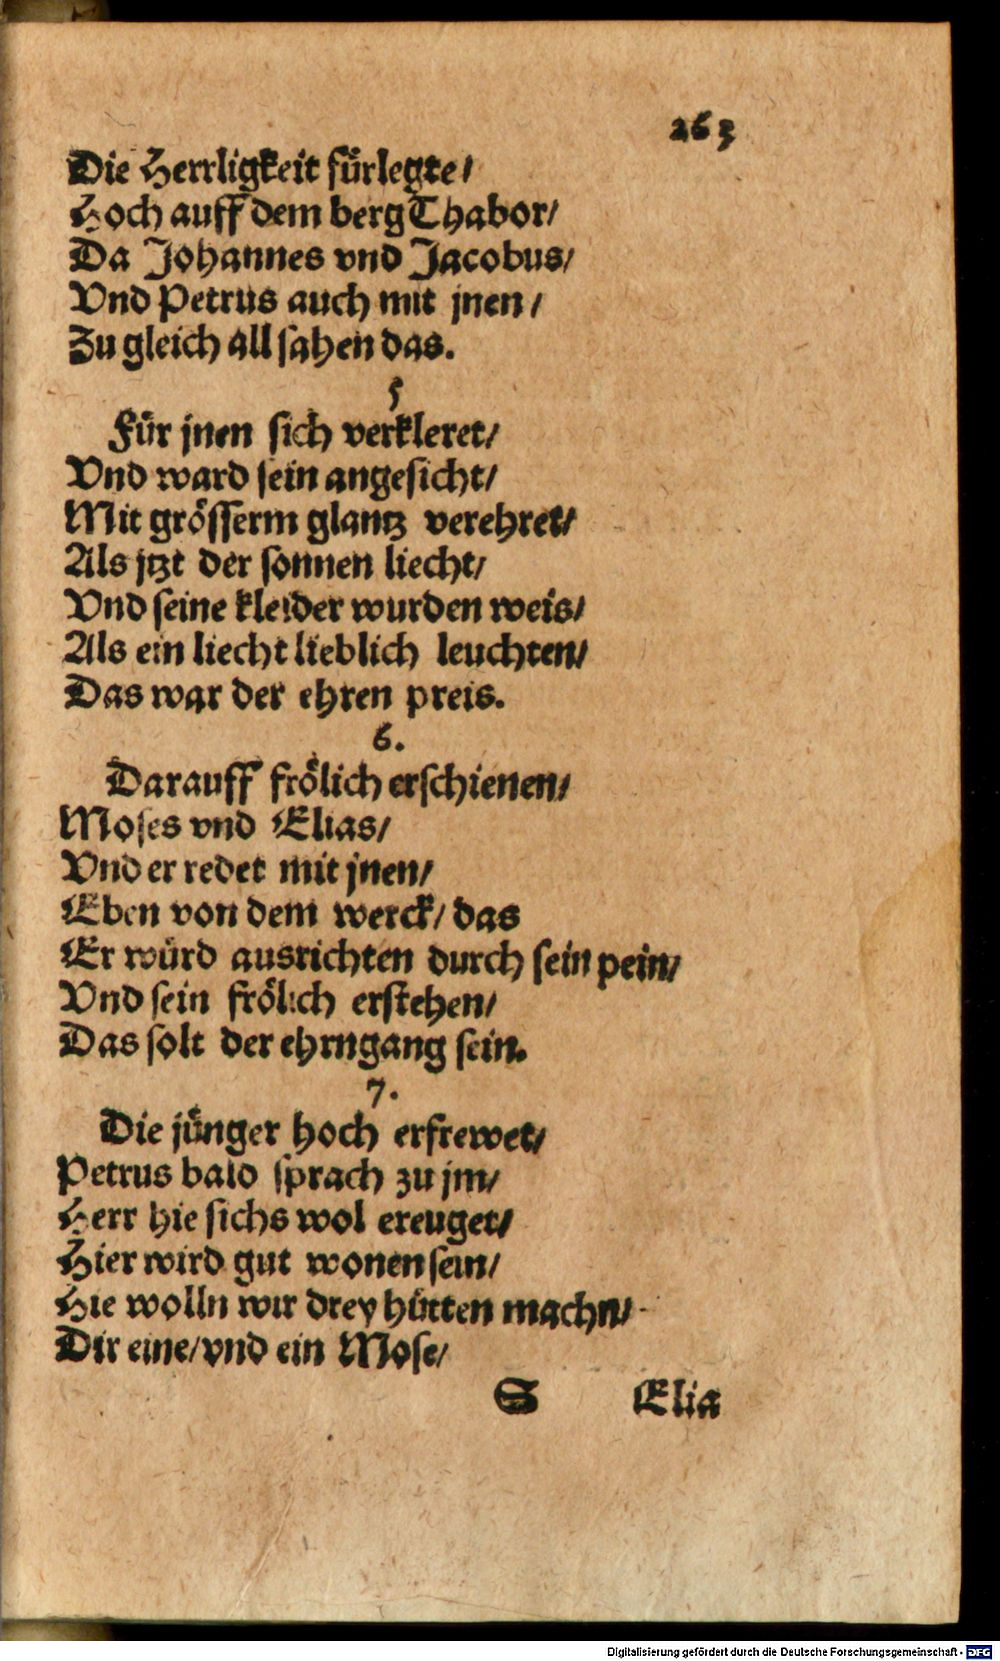 263
Die Herrligkeit fürlegte/
Hoch auff dem berg Thabor/
Da Johannes vnd Jacobus/
Vnd Petrus auch mit jnen/
Zu gleich all sahen das.
5
Für jnen sich verkleret/
Vnd ward sein angesicht/
Mit grösserm glantz verehret/
Als jtzt der sonnen liecht/
Vnd seine kleider wurden weis/
Als ein liecht lieblich leuchten/
Das war der ehren preis.
6.
Darauff frölich erschienen/
Moses vnd Elias/
Vnd er redet mit jnen/
Eben von dem werck/ das
Er würd ausrichten durch sein pein/
Vnd sein frölich erstehen/
Das solt der ehrngang sein.
7.
Die jünger hoch erfrewet/
Petrus bald sprach zu jm/
Herr hie sichs wol ereuget/
Hier wird gut wonen sein/
Hie wolln wir drey hütten machn/
Dir eine/ vnd ein Mose/
S Elia
Digitalisierung gefördert durch die Deutsche Forschungsgemeinschaft - DFG